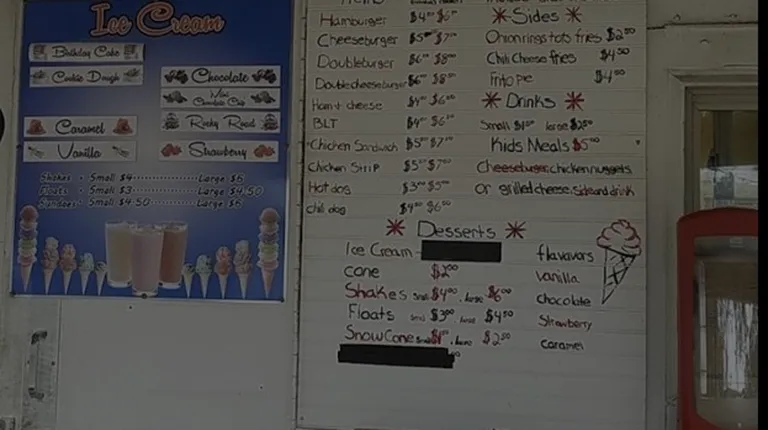 Ice Cream
Birthday Cake
Cookie Dough
Chocolate
Mint
Chocolate Chip
Rocky Road
Caramel
Vanilla
Strawberry
Shakes • Small $4 Large $6
Floats • Small $3 Large $4.50
Sundaes • Small $4.50 Large $6
Hamburger $4.00 $6
Cheeseburger $5 $7
Doubleburger $6 $8
Doublecheeseburger $6 $8
Ham & cheese $6
BLT $6
Chicken Sandwich $5 $7
Chicken Strip $5 $7
Hot dog $3 $5
chili dog $6
Sides
Onion rings tots fries $2
Chili Cheese fries $4.50
Frito Pie $4.50
Drinks
Small large
Kids Meals $5
Cheeseburger, chicken nuggets
or grilled cheese, side and drink
Desserts
Ice Cream
cone $2.00
Shakes small $4.00, large $6.00
Floats small $3.00 large $4.50
Snow Cone small $1, large $2.50
flavavors
vanilla
chocolate
Strawberry
caramel